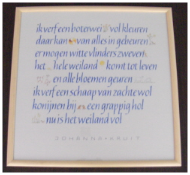 ik verf een boterwei vol kleuren
daar kan van alles in gebeuren
er mogen witte vlinders zweven
het hele weiland komt tot leven
en alle bloemen geuren
ik verf een schaap van zachte wol
konijnen bij een grappig hol
nu is het weiland vol